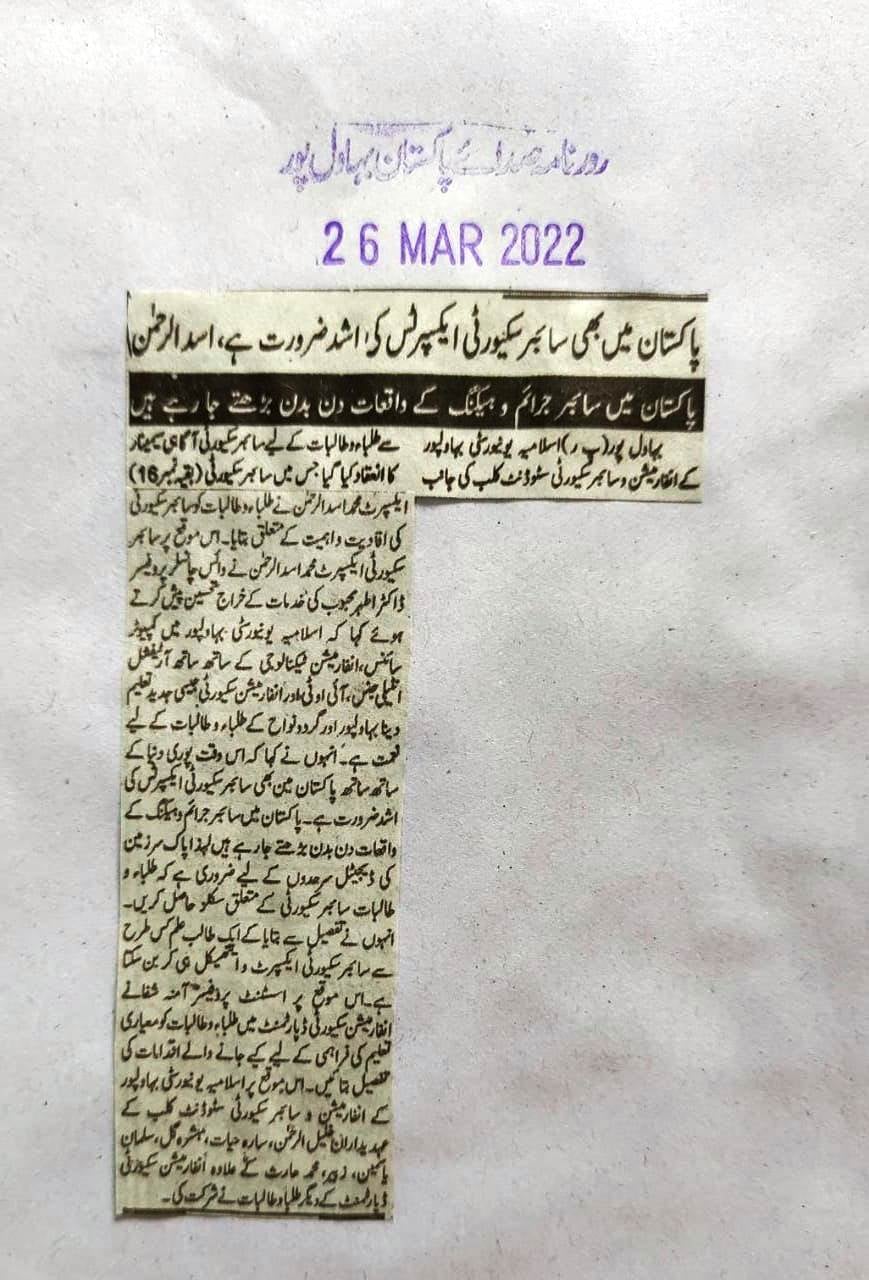 روزنامہ صدائے پاکستان بہاول پور
26 MAR 2022
پاکستان میں بھی سائبر سکیورٹی ایکسپرٹس کی اشد ضرورت ہے، اسد الرحمٰن
پاکستان میں سائبر جرائم و ہیکنگ کے واقعات دن بدن بڑھتے جا رہے ہیں
بہاول پور (پ ر) اسلامیہ یونیورسٹی بہاولپور
کے انفارمیشن و سائبر سکیورٹی سٹوڈنٹ کلب کی جانب
سے طلباء و طالبات کے لیے سائبر سکیورٹی آگاہی سیمینار
کا انعقاد کیا گیا جس میں سائبر سکیورٹی (بقیہ نمبر16)
ایکسپرٹ محمد اسد الرحمٰن نے طلباء و طالبات کو سائبر سکیورٹی
کی افادیت و اہمیت کے متعلق بتایا۔ اس موقع پر سائبر
سکیورٹی ایکسپرٹ محمد اسد الرحمٰن نے وائس چانسلر پروفیسر
ڈاکٹر اطہر محبوب کی خدمات کے خراج تحسین پیش کرتے
ہوئے کہا کہ اسلامیہ یونیورسٹی بہاولپور میں کمپیوٹر
سائنس، انفارمیشن ٹیکنالوجی کے ساتھ ساتھ آرٹیفشل
انٹیلی جنس، آئی او ٹی اور انفارمیشن سکیورٹی جیسی جدید تعلیم
دینا بہاولپور اور گرد و نواح کے طلباء و طالبات کے لیے
نعمت ہے۔ انہوں نے کہا کہ اس وقت پوری دنیا کے
ساتھ ساتھ پاکستان مین بھی سائبر سکیورٹی ایکسپرٹس کی
اشد ضرورت ہے۔ پاکستان میں سائبر جرائم و ہیکنگ کے
واقعات دن بدن بڑھتے جا رہے ہیں لہذا پاک سرزمین
کی ڈیجیٹل سرحدوں کے لیے ضروری ہے کہ طلباء و
طالبات سائبر سکیورٹی کے متعلق سکلز حاصل کریں۔
انہوں نے تفصیل سے بتایا کے ایک طالب علم کس طرح
سے سائبر سکیورٹی ایکسپرٹ و ایتھیکل ہیکر بن سکتا
ہے۔ اس موقع پر اسسٹنٹ پروفیسر آمنہ شفا نے
انفارمیشن سکیورٹی ڈپارٹمنٹ میں طلباء و طالبات کو معیاری
تعلیم کی فراہمی کے لیے کیے جانے والے اقدامات کی
تفصیل بتائیں۔ اس موقع پر اسلامیہ یونیورسٹی بہاولپور
کے انفارمیشن و سائبر سکیورٹی سٹوڈنٹ کلب کے
عہدیداران خلیل الرحمٰن، سارہ حیات، مبشرہ گل، سلمان
یاسین، زبیر، محمد حارث کے علاوہ انفارمیشن سکیورٹی
ڈپارٹمنٹ کے دیگر طلباء و طالبات نے شرکت کی۔